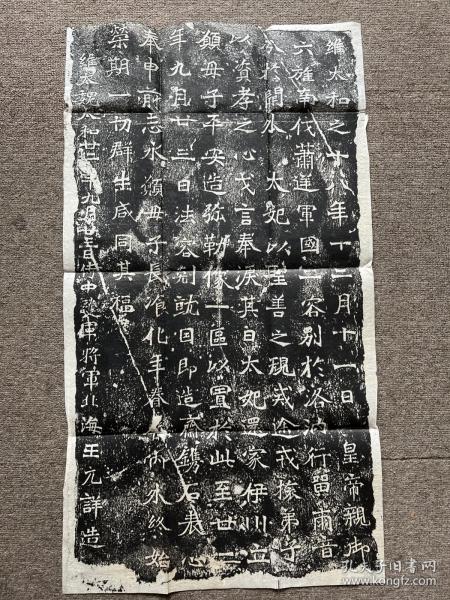 維太和之十八年十二月十一日皇帝親御
六旌南伐蕭逆軍國二容別於洛汭行留兩音
分於闕外太妃以聖善之規戒途戎旅弟子
以資孝之心戈言奉淚其日太妃還家伊川立
願母子平安造弥勒像一區以置於此至廿二
年九月廿三日法容剋就因即造齋鐫石表心
奉申前志永願母子長瀅化年眷屬內外終始
榮期一切群生咸同其福
維大魏太和廿二年九月廿三日侍中護軍將軍北海王元詳造
孔夫子旧书网
kongfz.com